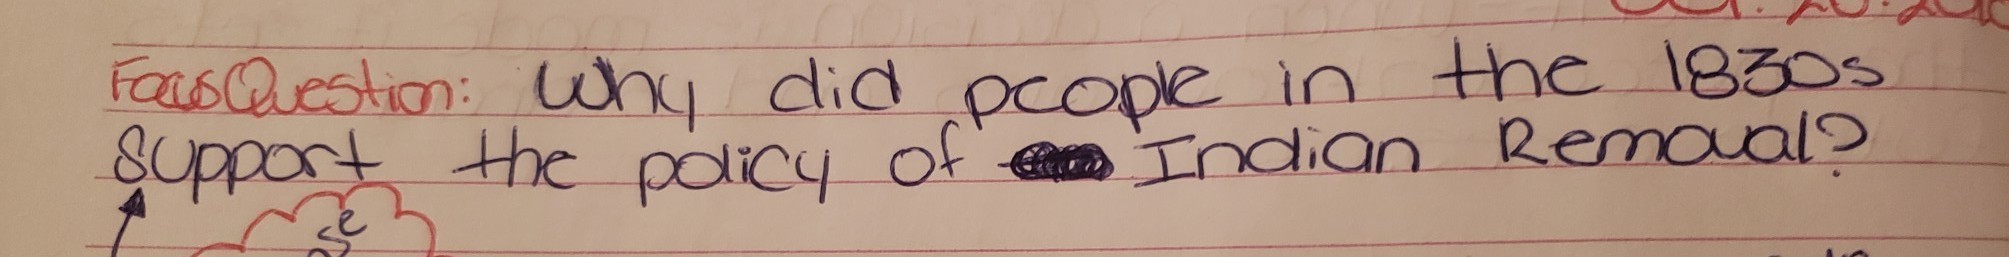 Focus Question: Why did people in the 1830s
support the policy of Indian Removal?
se